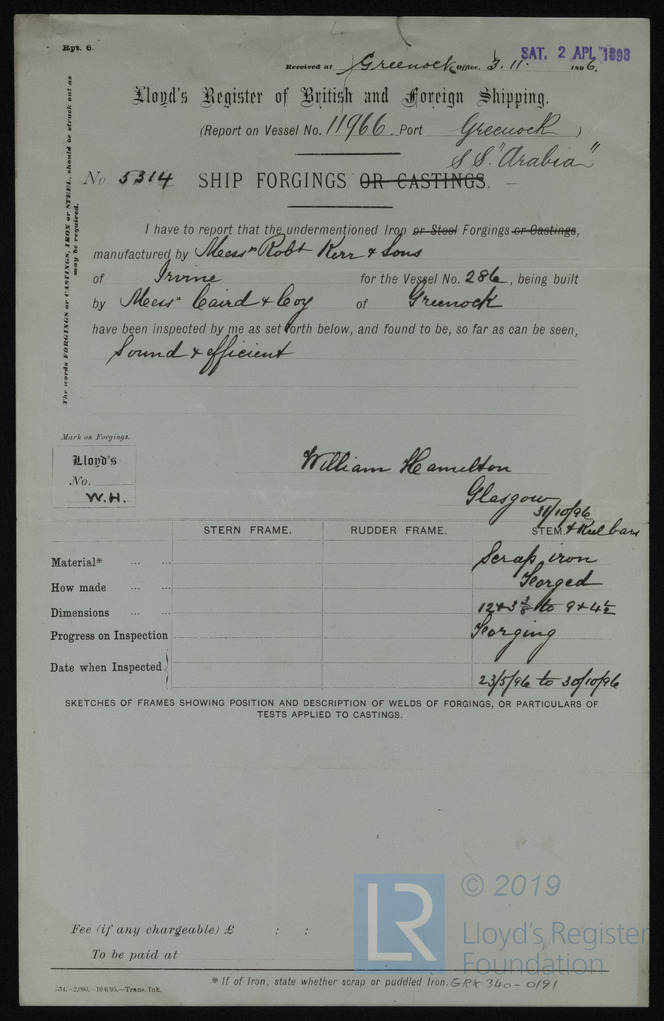 Rpt. 6.
SAT. 2 APL 1898
Received at Greenock Office, 3.11. 1896.
Lloyd's Register of British and Foreign Shipping.
(Report on Vessel No. 11966. Port Greenock)
S.S. "Arabia"
No. 5314 SHIP FORGINGS OR CASTINGS.
The words FORGINGS or CASTINGS, IRON or STEEL, should be struck out as may be required.
I have to report that the undermentioned Iron or Steel Forgings or Castings,
manufactured by Messrs Robt Kerr & Sons
of Irvine for the Vessel No. 286, being built
by Messrs Caird & Coy of Greenock
have been inspected by me as set forth below, and found to be, so far as can be seen,
Sound & efficient
Mark on Forgings.
Lloyd's
No.
W.H.
William Hamelton
Glasgow
31/10/96
STERN FRAME. RUDDER FRAME. STEM & Keel bars
Material* Scrap iron
How made Forged
Dimensions 12 x 3 3/8 to 9 x 4 1/2
Progress on Inspection Forging
Date when Inspected 23/5/96 to 30/10/96
SKETCHES OF FRAMES SHOWING POSITION AND DESCRIPTION OF WELDS OF FORGINGS, OR PARTICULARS OF
TESTS APPLIED TO CASTINGS.
LR
© 2019
Lloyd's Register
Foundation
Fee (if any chargeable) £ : :
To be paid at
* If of Iron, state whether scrap or puddled Iron. GRK 340-0191
Trans. Ink.